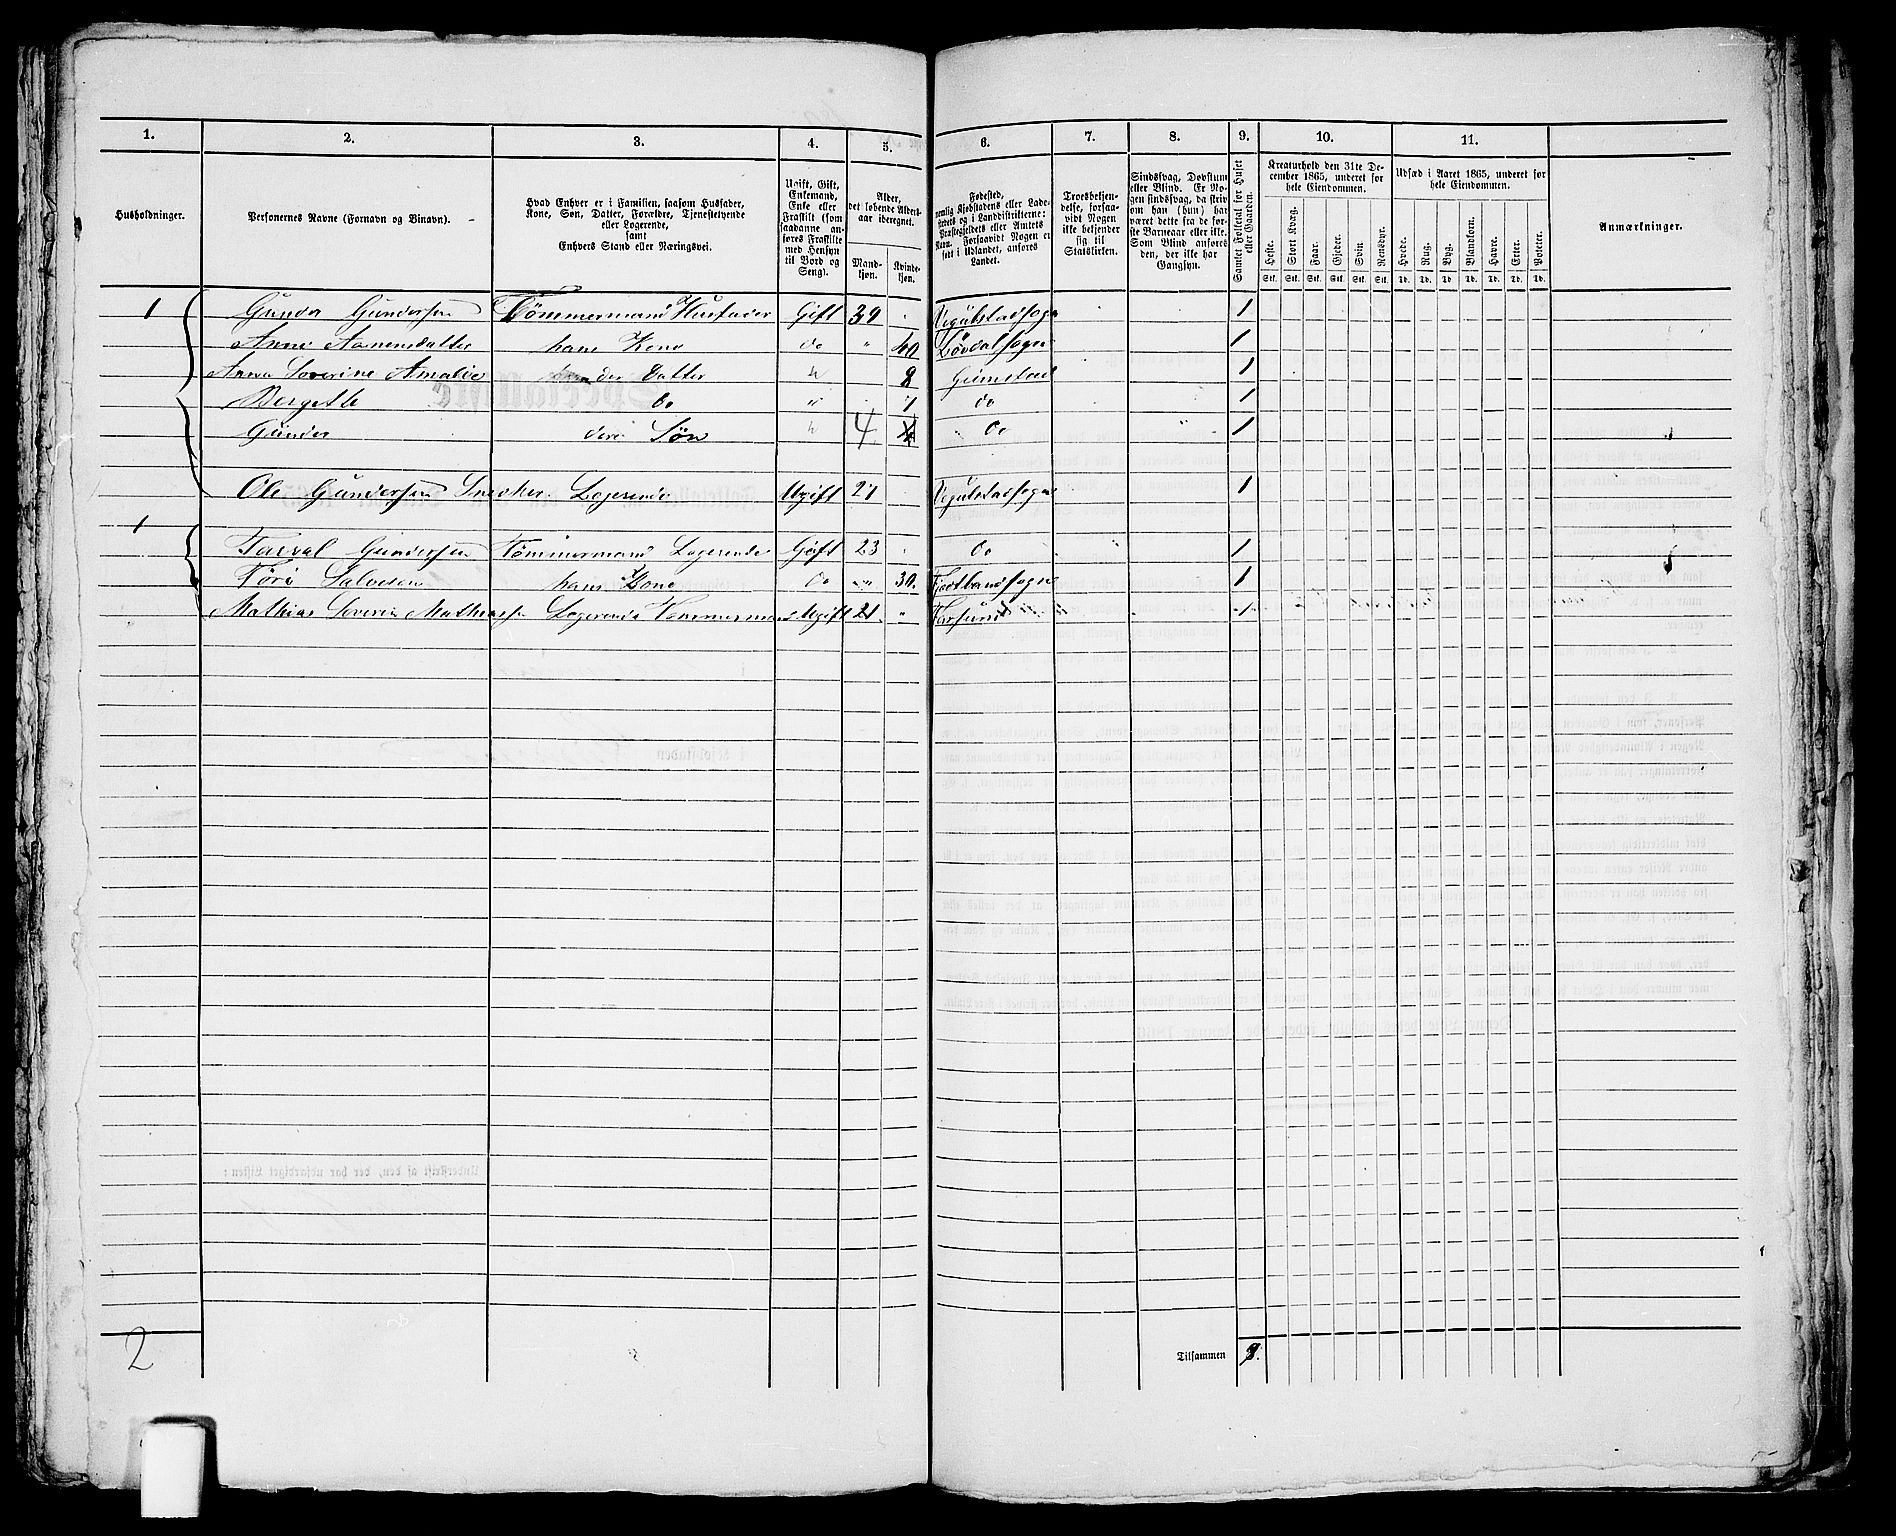 1. 2. 3. 4. 5. 6. 7. 8. 9. 10. 11.
Husholdninger.
Personernes Navne (Fornavn og Binavn).
Hvad Enhver er i Familien, saasom Husfader,
Kone, Søn, Datter, Forældre, Tjenestetyende
eller Logerende,
samt
Enhvers Stand eller Næringsvei.
Ugift, Gift,
Enkemand,
Enke eller
Fraskilt (som
saadanne an-
føres Fraskilte
med Hensyn
til Bord og
Seng).
Alder,
det løbende Alders-
aar iberegnet.
Mand-
kjøn.
Kvinde-
kjøn.
Fødested,
nemlig Kjøbstadens eller Lade-
stedets og i Landdistrikterne:
Præstegjeldets eller Amtets
Navn. Forsaavidt Nogen er
født i Udlandet, anføres
Landet.
Troesbekjen-
delse, forsaa-
vidt Nogen
ikke bekjender
sig til
Statskirken.
Sindssvag, Døvstum
eller Blind. Er No-
gen sindssvag, da skriv
om han (hun) har
været dette fra de før-
ste Barneaar eller ikke.
Som Blind anføres
den, der ikke har
Gangsyn.
Samlet Folketal for Huset
eller Gaarden.
Kreaturhold den 31te De-
cember 1865, underet for
hele Eiendommen.
Heste. Stort Kvæg. Faar. Gjeder. Svin. Rensdyr.
Stk. Stk. Stk. Stk. Stk. Stk.
Udsæd i Aaret 1865, underet for
hele Eiendommen.
Hvede. Rug. Byg. Blandkorn. Havre. Erter. Poteter.
Td. Td. Td. Td. Td. Td. Td.
Anmærkninger.
1 Gunder Gundersen Tømmermand Husfader Gift 39 1
Anne Aanensdatter hans Kone do " 40 1
Anna Severine Amalie deres Datter " 8 Grimstad 1
Bergethe Do " 1 do 1
Gunder deres Søn " 4 Do 1
Ole Gundersen Snedker Logerende Ugift 21 1
1 Tarval Gundersen Tømmermand Logerende Gift 23 Do 1
Tøri Salvesen hans Kone Do " 30. 1
Mathias Severin Logerende Tømmermand Ugift 21 " Farsund 1
2
Tilsammen